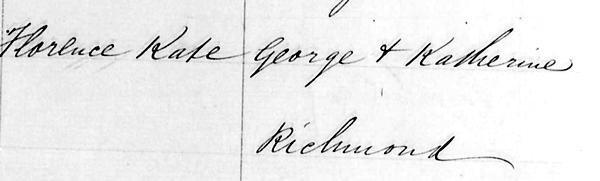 Florence Kate George + Katherine
Richmond